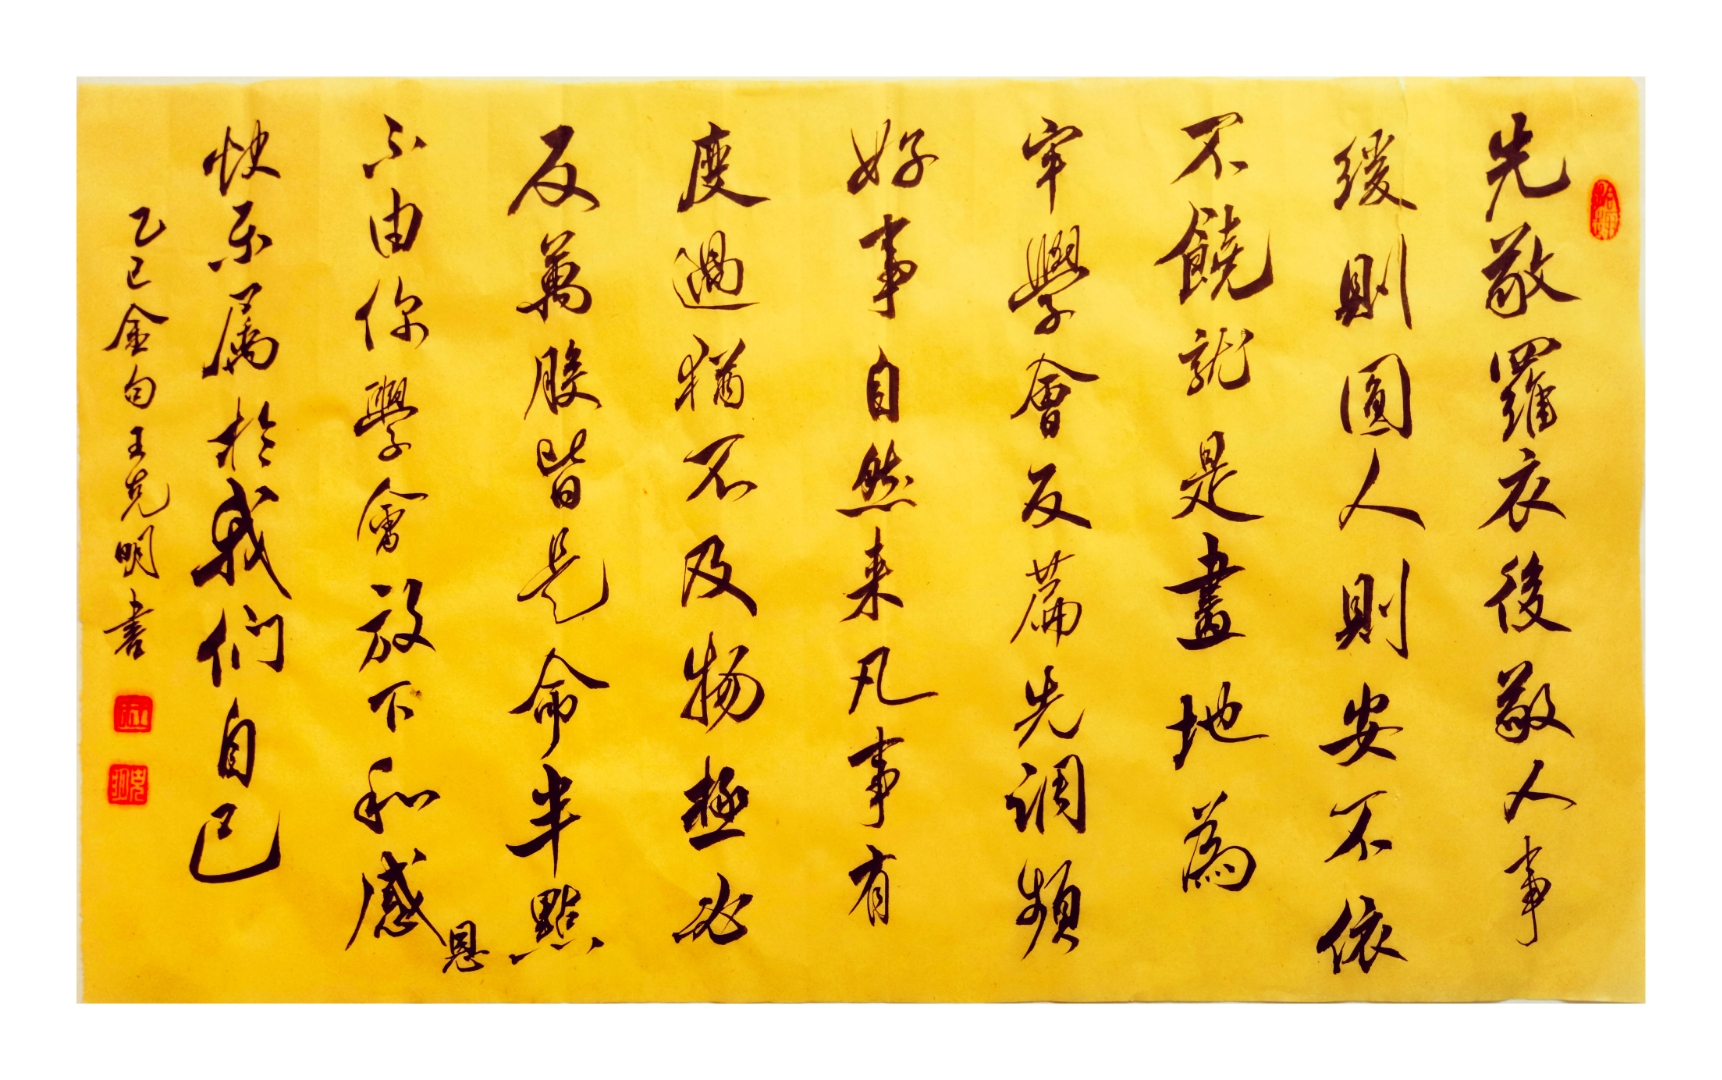 先敬羅衣後敬人事
緩則圓人則安不依
不饒就是畫地為
牢學會反篇先调頻
好事自然来凡事有
度過猶不及物極必
反萬般皆是命半點
不由你學會放下和感恩
快乐属於我们自己
乙巳金句王克明書